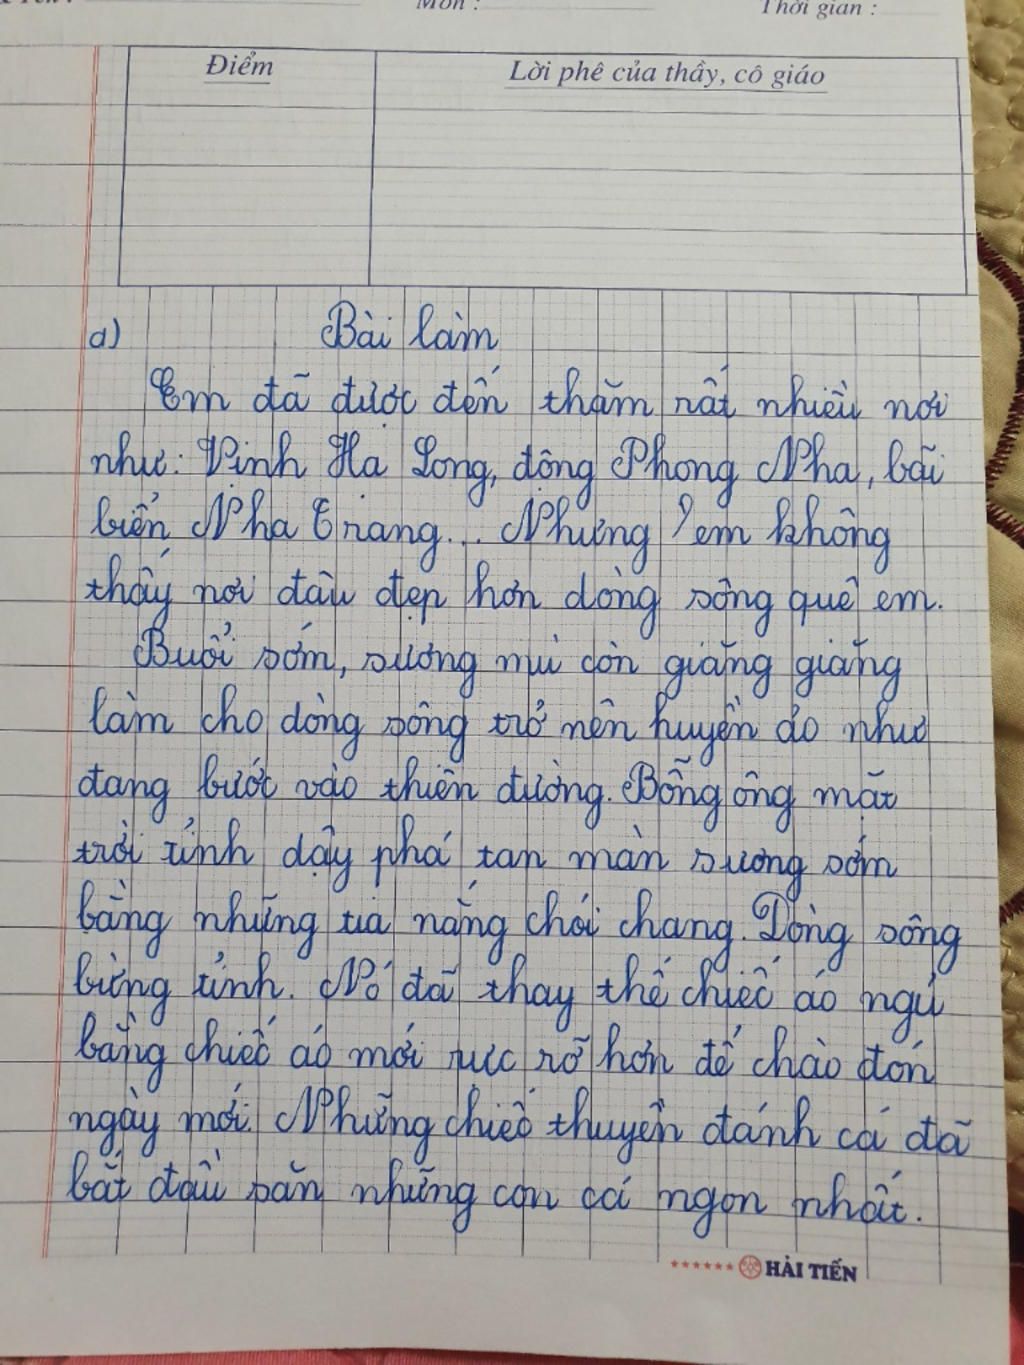 Tên :
Môn :
Thời gian :
Điểm
Lời phê của thầy, cô giáo
a)
Bài làm
Em đã được đến thăm rất nhiều nơi
như: Vịnh Hạ Long, động Phong Nha, bãi
biển Nha Trang... Nhưng em không
thấy nơi đâu đẹp hơn dòng sông quê em.
Buổi sớm, sương mù còn giăng giăng
làm cho dòng sông trở nên huyền ảo như
đang bước vào thiên đường. Bỗng ông mặt
trời tỉnh dậy phá tan màn sương sớm
bằng những tia nắng chói chang. Dòng sông
bừng tỉnh. Nó đã thay thế chiếc áo ngủ
bằng chiếc áo mới rực rỡ hơn để chào đón
ngày mới. Những chiếc thuyền đánh cá đã
bắt đầu săn những con cá ngon nhất.
HẢI TIẾN